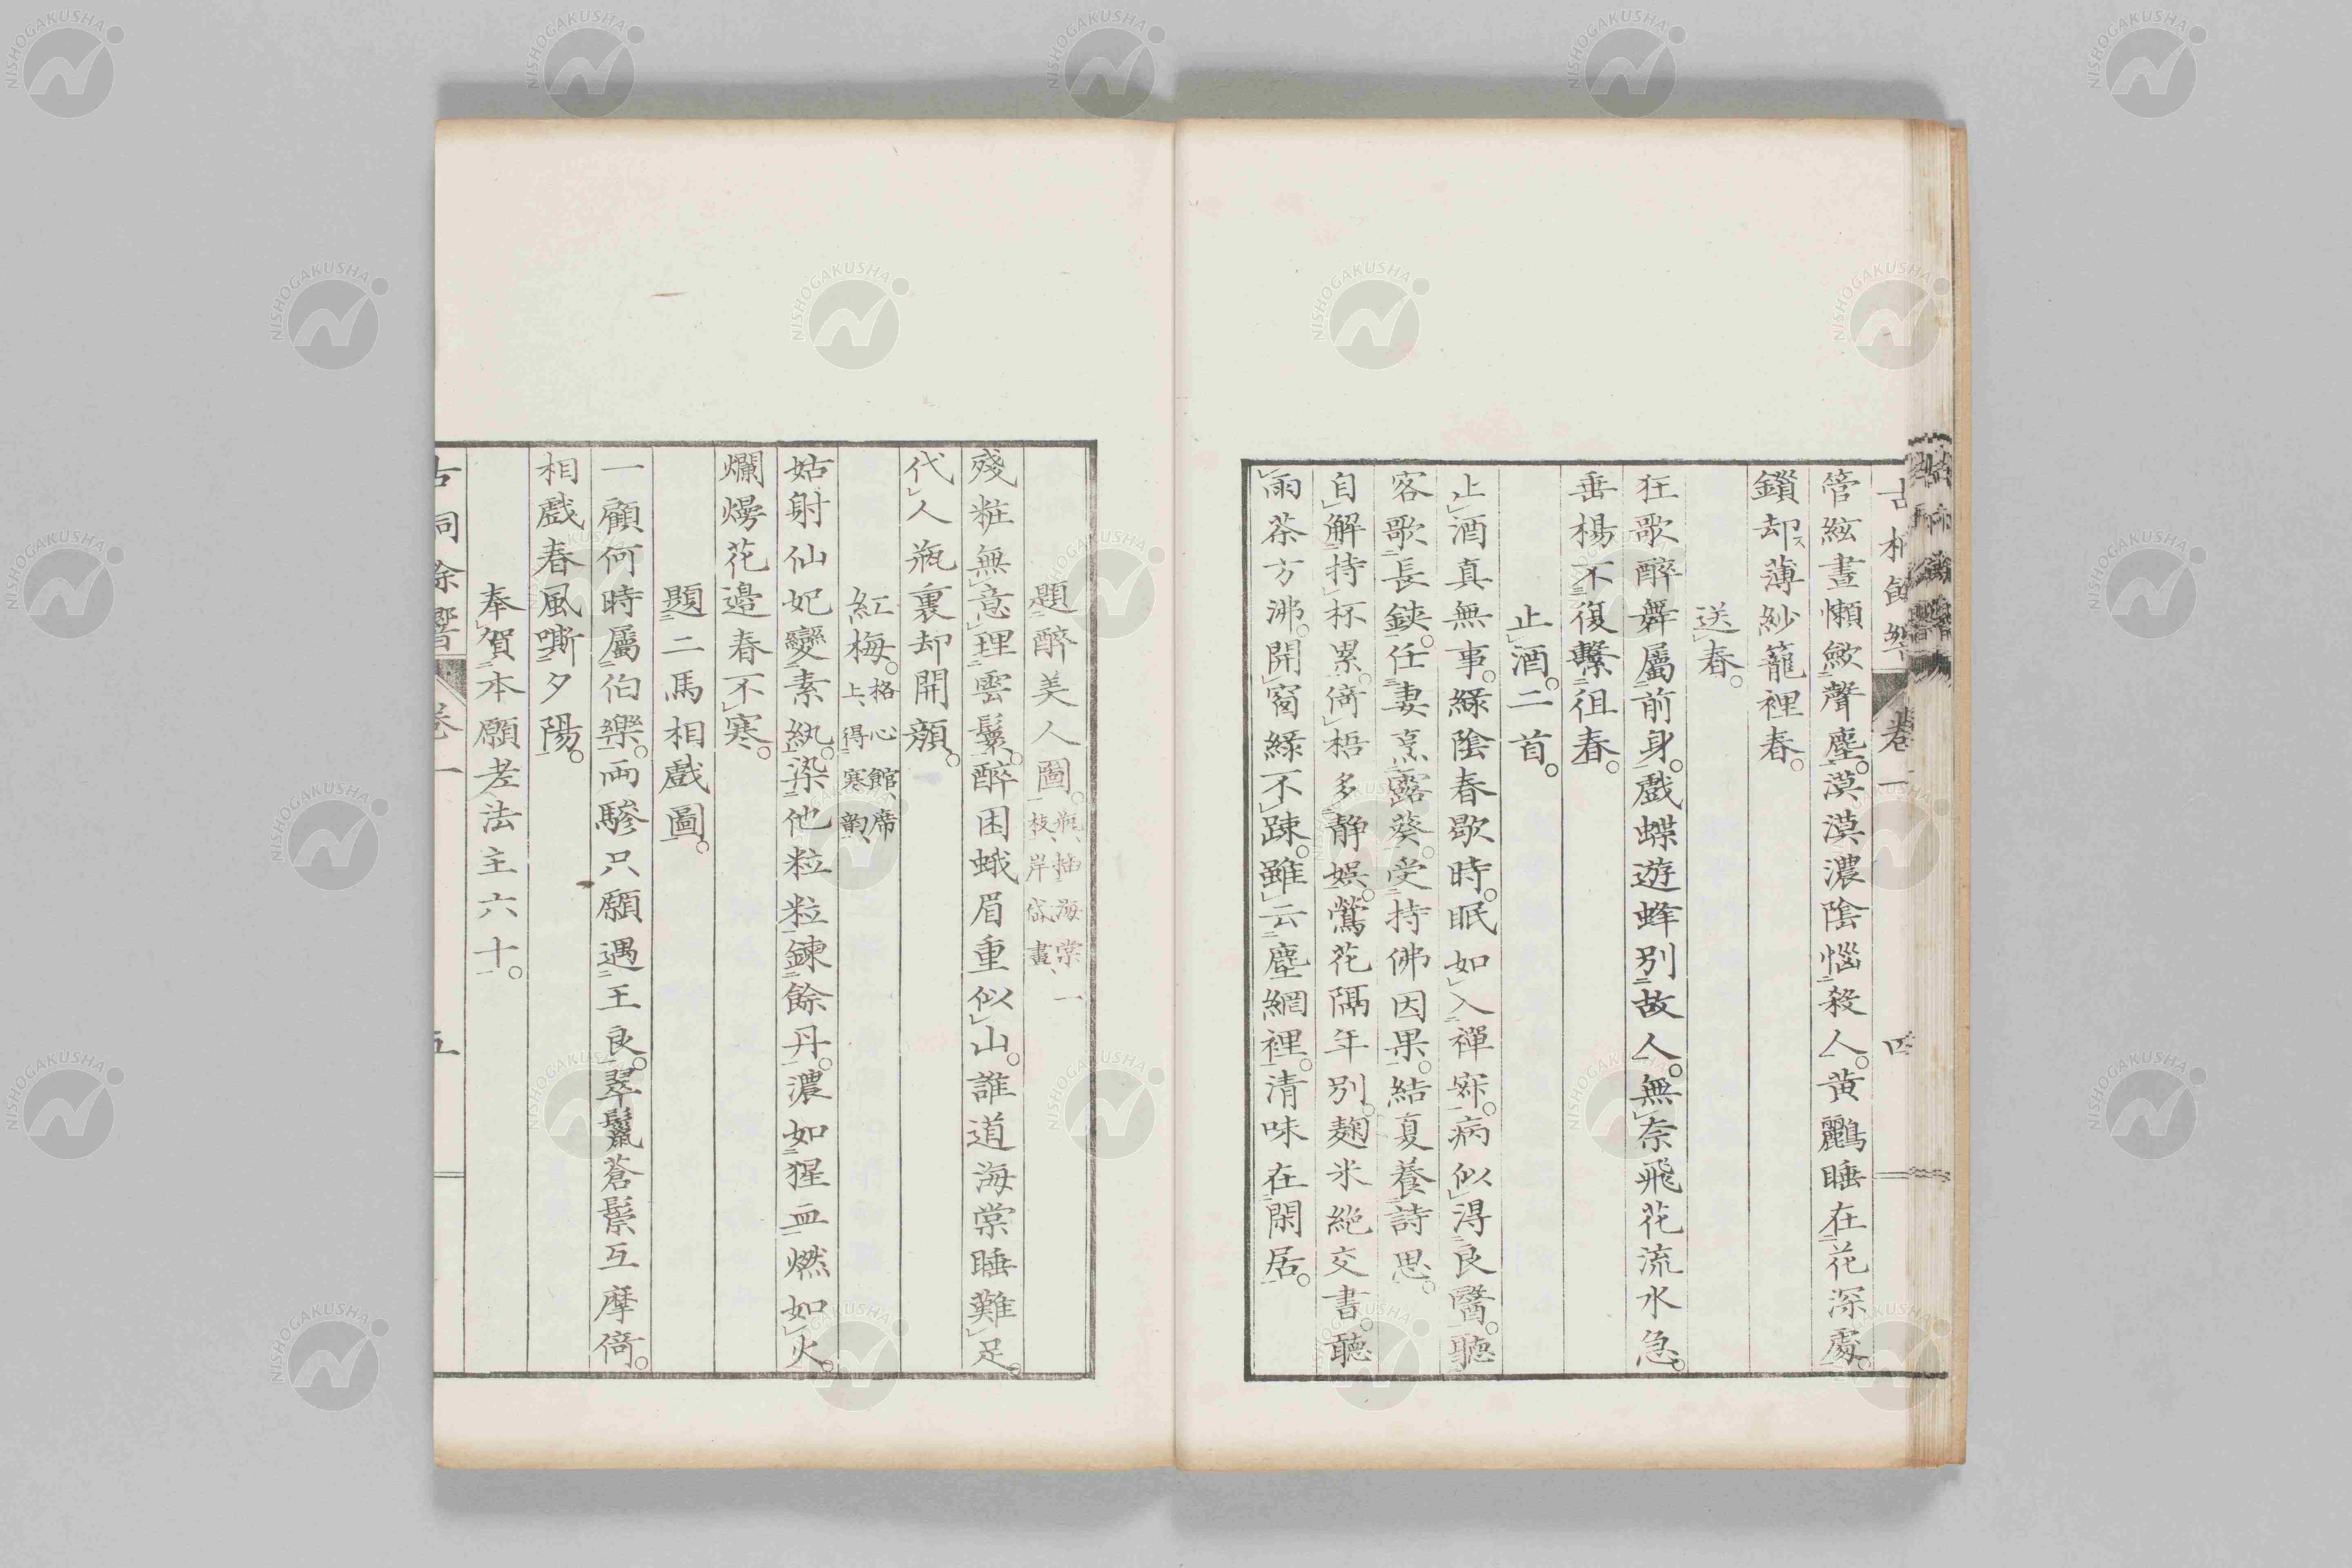 管絃晝懶歛聲塵。漠漠濃陰惱殺人。黄鸝睡在花深處。
鎖却ス薄紗籠裡春。
送春。
狂歌醉舞屬前身。戲蝶遊蜂別故人。無奈飛花流水急。
垂楊不復繫徂春。
止酒。二首。
止酒真無事。緑陰春歇時。眠如入禪寂。病似得良醫。聽
客歌長鋏。任妻烹露葵。受持佛因果。結夏養詩思。
自解持杯累。倚梧多静娯。鶯花隔年別。麹米絶交書。聽
雨茶方沸。開窗緑不踈。雖云塵網裡。清味在閑居。
卷一
四
題醉美人圖。瓶、抽海棠一
枝、岸岱畫、
殘粧無意理雲鬟。醉困蛾眉重似山。誰道海棠睡難足。
代人瓶裏却開顏。
紅梅。格心館、席
上、得寒韵、
姑射仙妃變素紈。染他粒粒鍊餘丹。濃如猩血燃如火。
爛熳花邉春不寒。
題二馬相戲圖。
一顧何時屬伯樂。兩驂只願遇王良。翠鬣蒼鬃互摩倚。
相戲春風嘶夕陽。
奉賀本願老法主六十。
古桐餘響
卷一
五
NISHOGAKUSHA